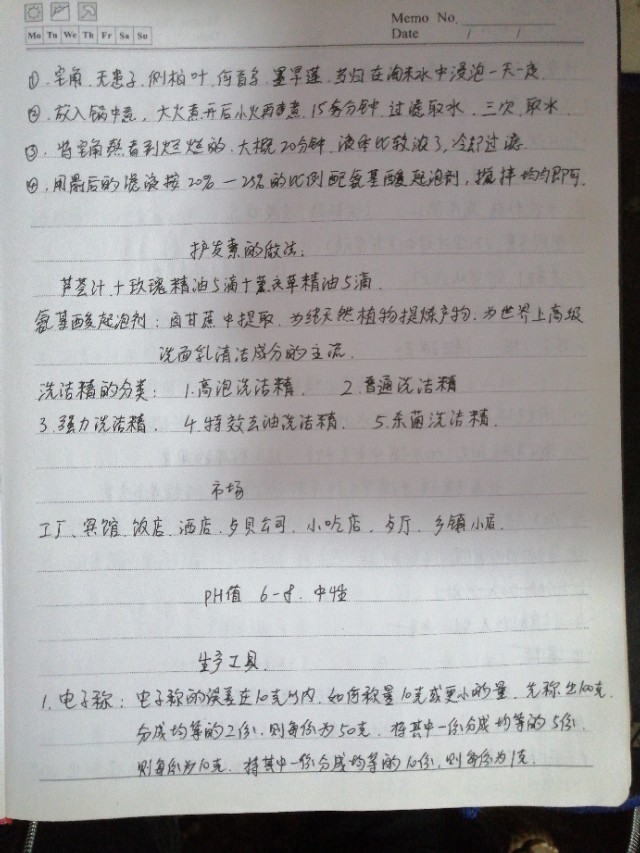 Memo No.
Mo Tu We Th Fr Sa Su
Date / /
①. 皂角、无患子、侧柏叶、何首乌、墨旱莲、当归在淘米水中浸泡一天一夜.
②. 放入锅中煮, 大火煮开后小火再煮, 15多分钟, 过滤取水、三次、取水.
③. 将皂角熬煮到烂烂的, 大概20分钟, 液体比较浓了, 冷却过滤.
④. 用最后的滤液按20%—25%的比例配氨基酸起泡剂, 搅拌均匀即可.
护发素的做法:
芦荟汁+玫瑰精油5滴+薰衣草精油5滴.
氨基酸起泡剂: 由甘蔗中提取, 为纯天然植物提炼产物, 为世界上高级
洗面乳清洁成分的主流.
洗洁精的分类: 1.高泡洗洁精. 2.普通洗洁精
3.强力洗洁精. 4.特效去油洗洁精. 5.杀菌洗洁精.
市场
工厂、宾馆、饭店、酒店、公司、小吃店、厅、乡镇小店.
PH值 6-8. 中性
生产工具.
1. 电子称: 电子称的误差在10克以内, 如何称量10克或更小的量, 先称出100克.
分成均等的2份, 则每份为50克. 将其中一份分成均等的5份.
则每份为10克. 将其中一份分成均等的10份, 则每份为1克.